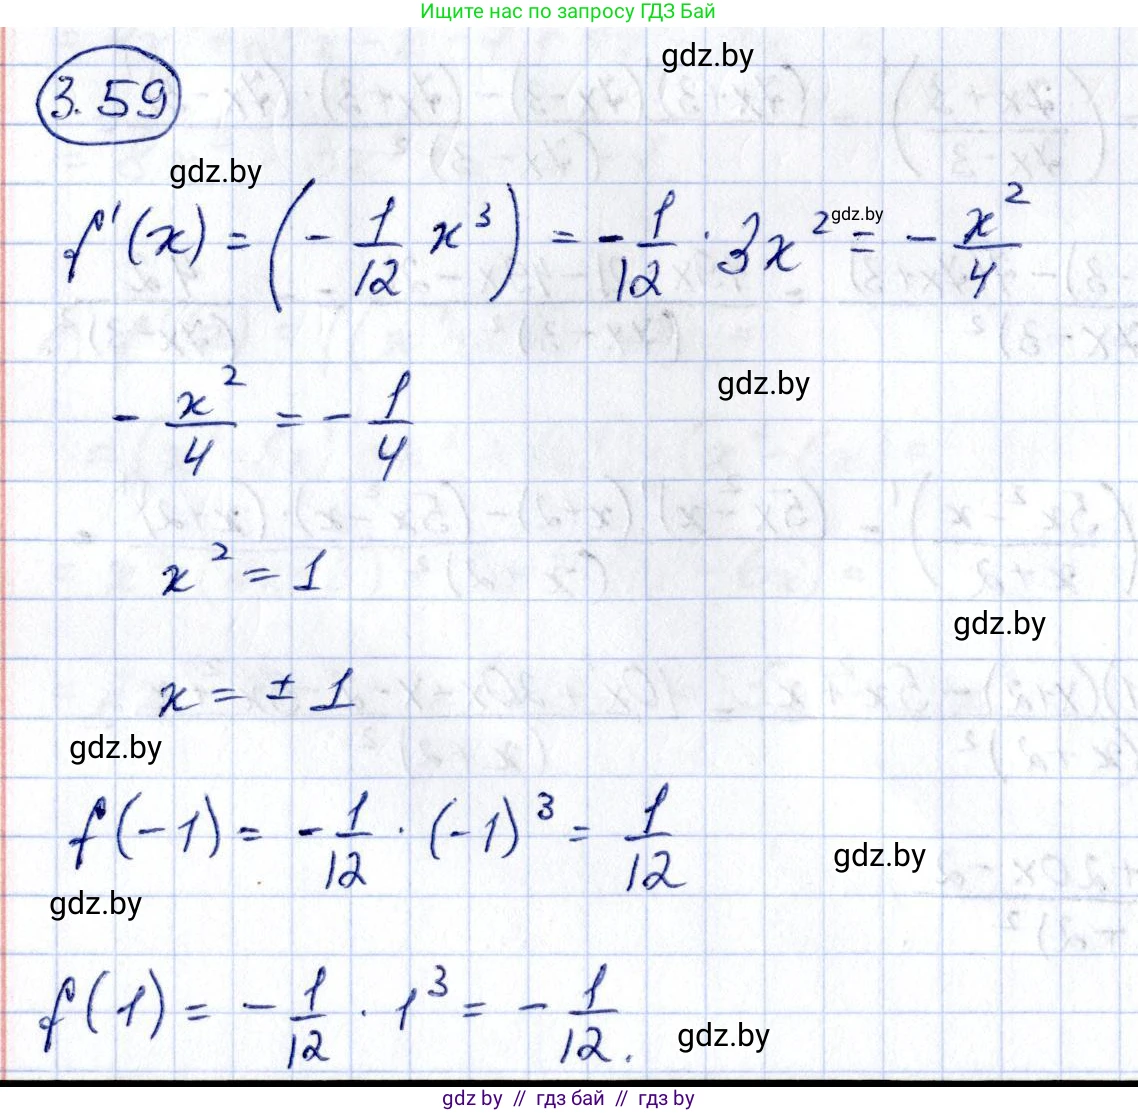 Ищите нас по запросу ГДЗ Бай
gdz.by
3.59
gdz.by
f'(x) = (- 1/12 x³) = - 1/12 · 3x² = - x²/4
gdz.by
gdz.by
- x²/4 = - 1/4
x² = 1
gdz.by
x = ± 1
gdz.by
f(-1) = - 1/12 · (-1)³ = 1/12
gdz.by
gdz.by
f(1) = - 1/12 · 1³ = - 1/12.
gdz.by
gdz by // гдз бай // гдз by